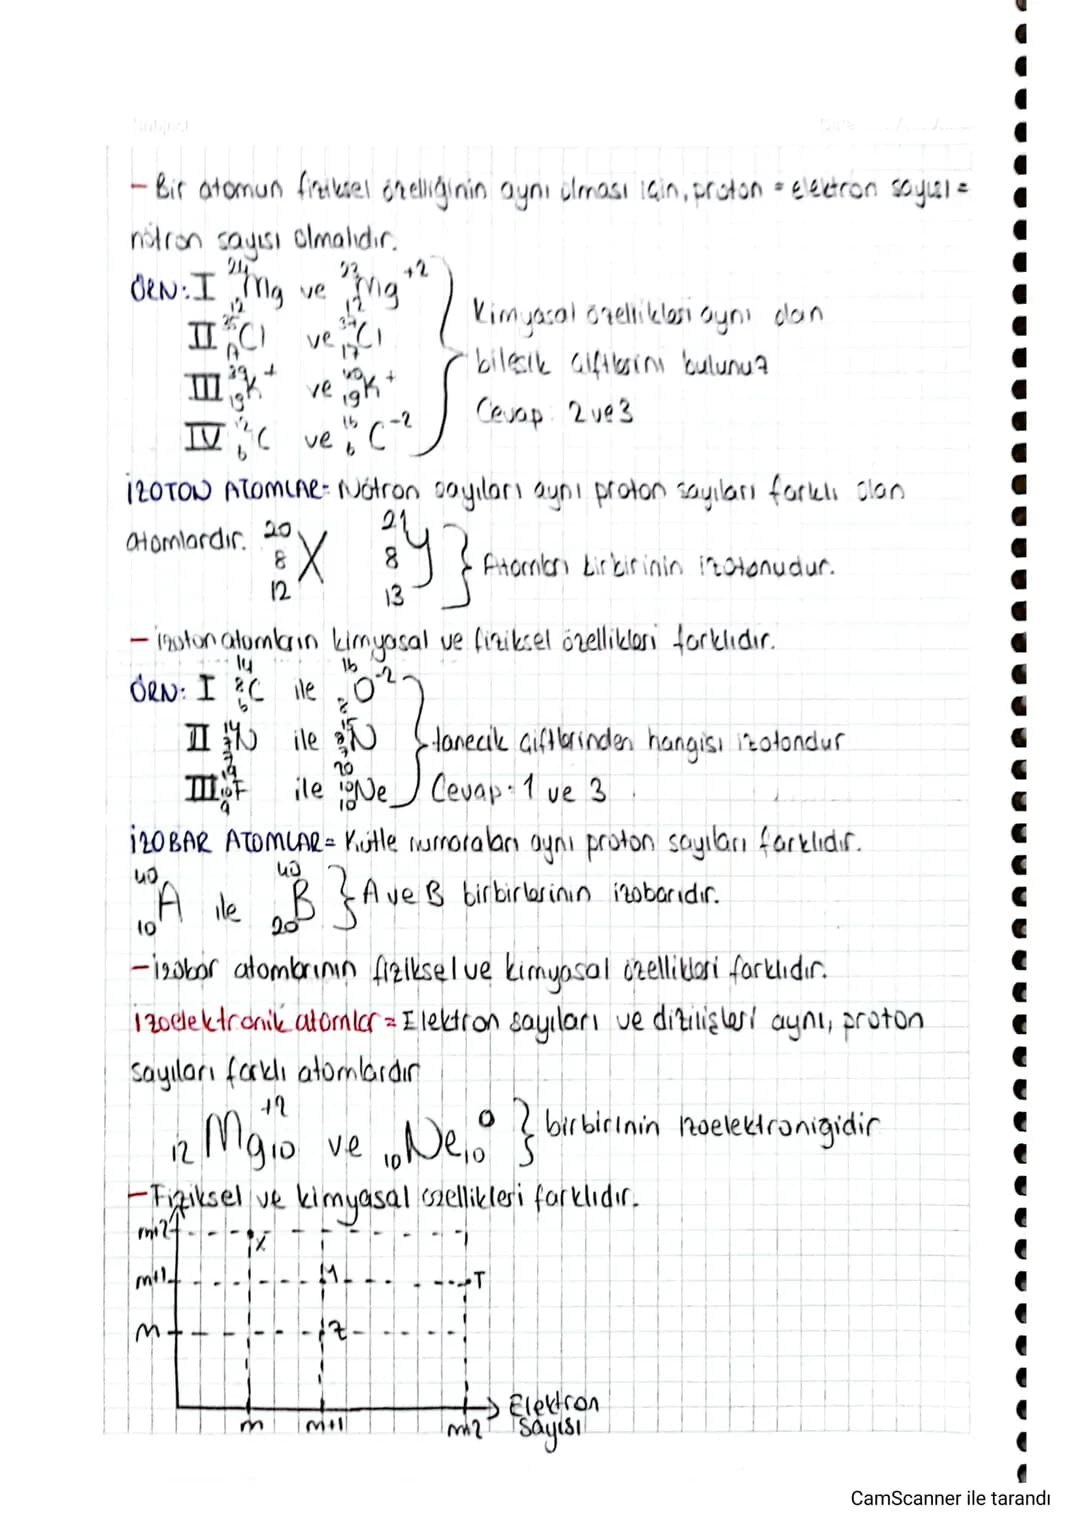 Subject
Date
- Bir atomun fiziksel özelliğinin aynı olması için, proton = elektron sayısı =
nötron sayısı olmalıdır.
ÖRN: I 24 12 Mg ve 23 12 Mg +2
II 35 17 Cl ve 37 17 Cl
III 39 19 K + ve 40 19 K +
IV 12 6 C ve 16 6 C -2
Kimyasal özellikleri aynı olan
bileşik çiftlerini bulunuz
Cevap: 2 ve 3
İZOTON ATOMLAR= Nötron sayıları aynı proton sayıları farklı olan
atomlardır. 20 8 12 X 21 8 13 Y } Atomları birbirinin izotonudur.
- izoton atomların kimyasal ve fiziksel özellikleri farklıdır.
ÖRN: I 14 8 6 C ile 16 8 O -2
II 14 7 7 N ile 15 8 7 N
III 19 10 9 F ile 20 10 10 Ne
tanecik çiftlerinden hangisi izotondur
Cevap: 1 ve 3
İZOBAR ATOMLAR= Kütle numaraları aynı proton sayıları farklıdır.
40 10 A ile 40 20 B } A ve B birbirlerinin izobarıdır.
- izobar atomlarının fiziksel ve kimyasal özellikleri farklıdır.
izoelektronik atomlar = Elektron sayıları ve dizilişleri aynı, proton
sayıları farklı atomlardır
12 Mg 10 +2 ve 10 Ne 10 0 } birbirinin izoelektroniğidir
- Fiziksel ve kimyasal özellikleri farklıdır.
m+2 X
m+1 Y T
m Z
Elektron
Sayısı
m m+1 m2
CamScanner ile tarandı